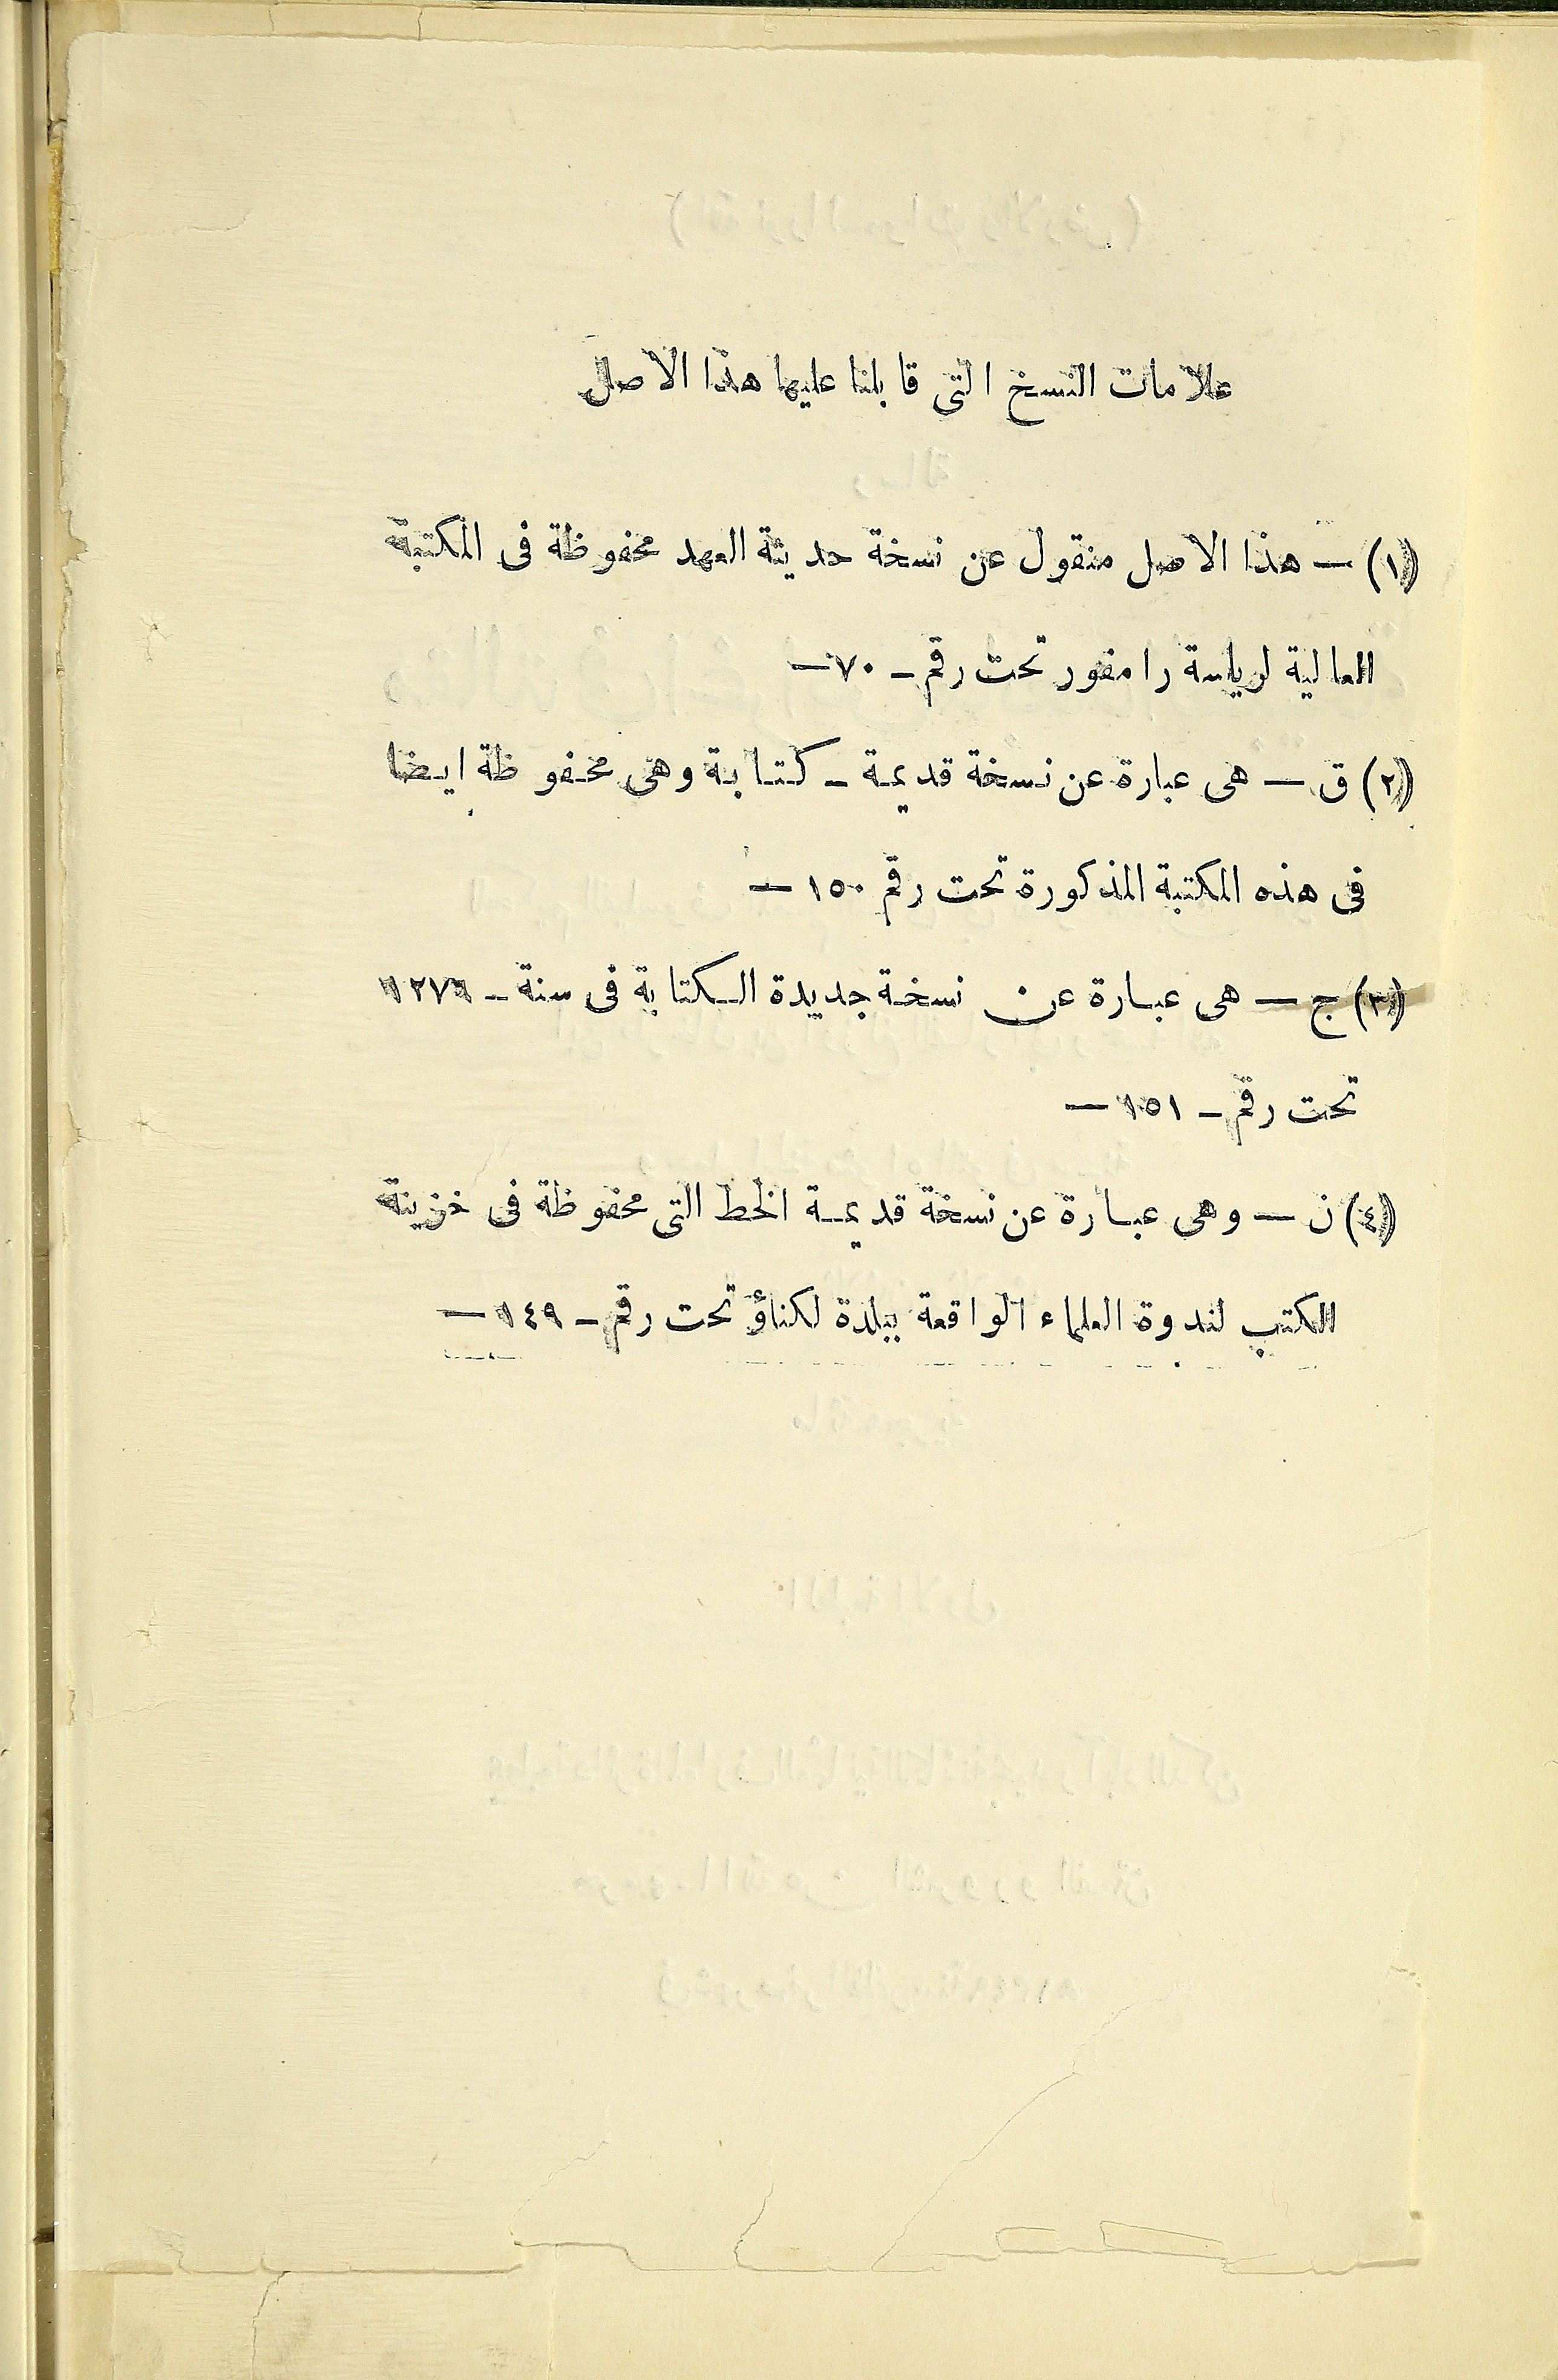 علامات النسخ التى قابلنا عليها هذا الاصل
(١) — هذا الاصل منقول عن نسخة حديثة العهد محفوظة فى المكتبة
العالية لرياسة رامفور تحت رقم - ٧٠ —
(٢) ق — هى عبارة عن نسخة قديمة - كتابة وهى محفوظة ايضا
فى هذه المكتبة المذكورة تحت رقم ١٥٠ —
(٣) ج — هى عبارة عن نسخة جديدة الكتابة فى سنة - ١٢٧٦
تحت رقم - ١٥١ —
(٤) ن — وهى عبارة عن نسخة قديمة الخط التى محفوظة فى خزينة
الكتب لندوة العلماء الواقعة ببلدة لكناؤ تحت رقم - ١٤٩ —